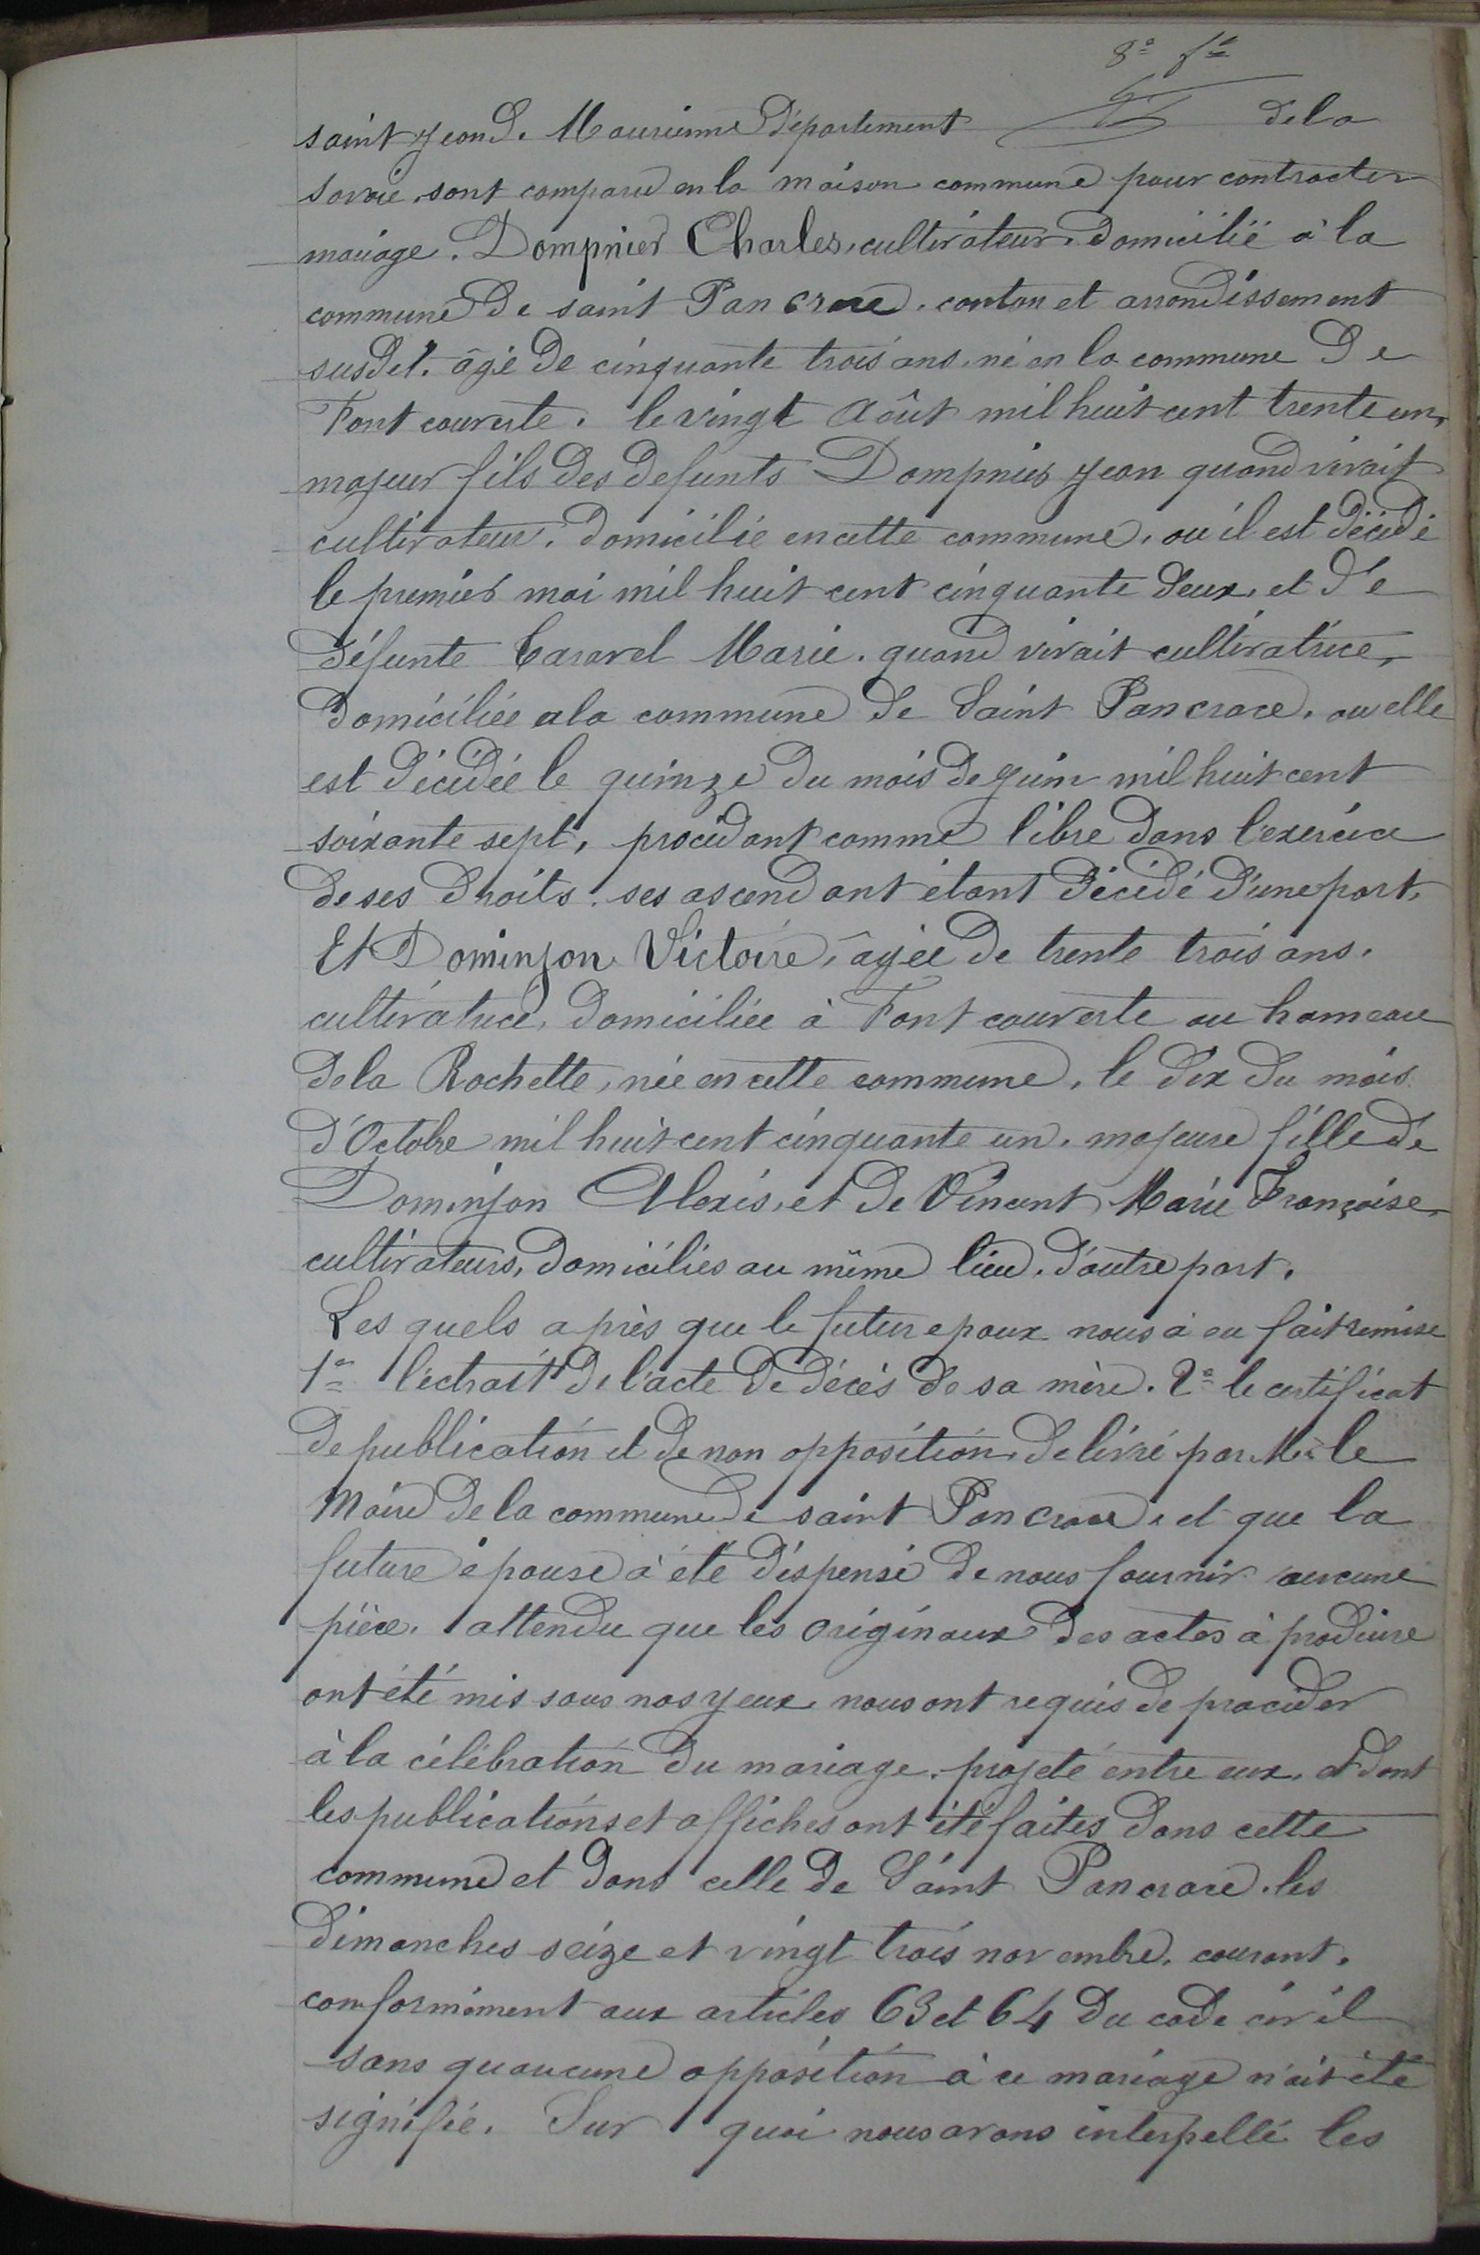 8e ft
saint Jean de Maurienne Département de la
Savoie, sont comparu en la maison commune pour contracter
mariage. Dompnier Charles, cultivateur, domicilié à la
commune de saint Pancrace, canton et arrondissement
susdit. âgé de cinquante trois ans, né en la commune de
Font couverte. le vingt Août mil huit cent trente un,
majeur fils des defunts Dompnier Jean quand vivait
cultivateur, domicilie en cette commune, ou il est décédé
le premier mai mil huit cent cinquante deux, et de
défunte Carard Marie. quand vivait cultivatrice,
domiciliée a la commune de Saint Pancrace, ou elle
est décédée le quinze du mois de Juin mil huit cent
soixante sept, procédant comme libre dans l'exercice
de ses droits. ses ascendant étant décédé d'une part,
Et Dominjon Victoire, âgée de trente trois ans.
cultivatrice, domiciliée à Font couverte au hameau
de la Rochette, née en cette commune, le dix du mois
d'Octobre mil huit cent cinquante un. majeure fille de
Dominjon Alexis, et de Vincent Marie Françoise,
cultivateurs, domiciliés au même lieu, d'autre part.
Les quels après que le futur epoux nous a eu fait remise
1e l'ectrait de l'acte de décès de sa mère. 2e le certificat
de publication et de non opposition délivré par Mr le
Maire de la commune de saint Pancrace, et que la
future épouse à été dispensé de nous fournir aucune
pièce. attendu que les originaux des actes à produire
ont été mis sous nos yeux, nous ont requis de procéder
à la célébration du mariage. projeté entre eux, et dont
les publications et affiches ont été faites dans cette
commune et dans celle de Saint Pancrace. les
dimanches seize et vingt trois novembre, courant.
conformément aux articles 63 et 64 du code civil
sans qu'aucune opposition à ce mariage n'ait été
signifié. Sur quoi nous avons interpellé les